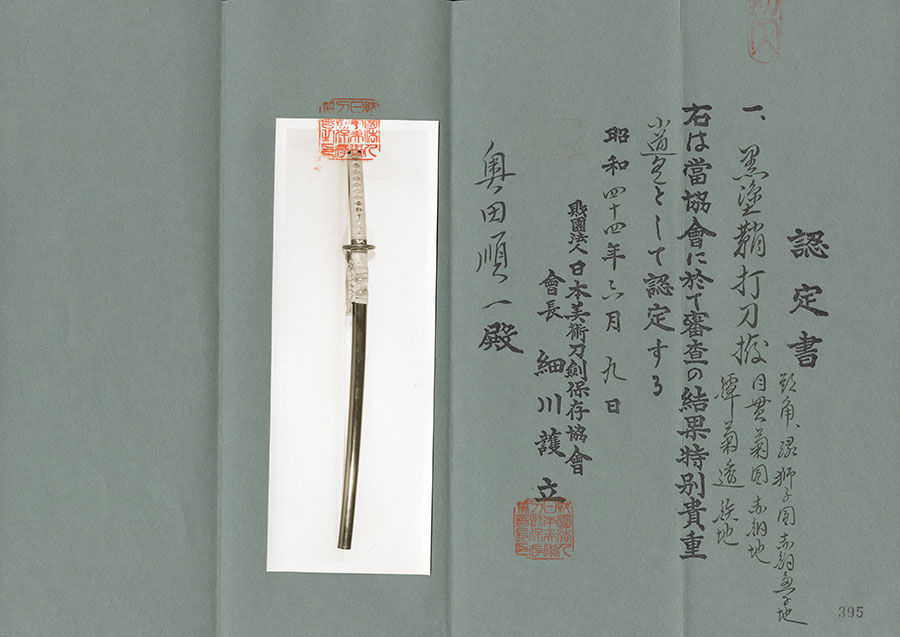 認定書
一、黒塗鞘打刀拵
頭角、縁獅子図赤銅魚子地
目貫菊図赤銅地
鐔菊透鉄地
右は當協會に於て審査の結果特別貴重
小道具として認定する
昭和四十四年六月九日
財團法人日本美術刀劍保存協會
會長 細川護立
奥田順一殿
395